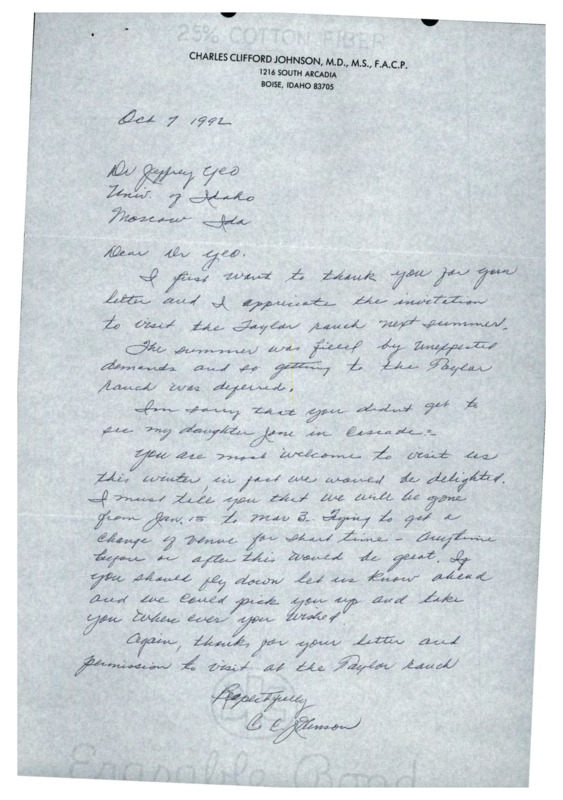 25% COTTON FIBER
CHARLES CLIFFORD JOHNSON, M.D., M.S., F.A.C.P.
1216 SOUTH ARCADIA
BOISE, IDAHO 83705
Oct 7 1992
Dr Jeffrey Yeo
Univ. of Idaho
Moscow Ida
Dear Dr Yeo.
I just want to thank you for your
letter and I appricate the invitation
to visit the Taylor ranch next summer.
The summer was filled by unexpected
demands and so getting to the Taylor
ranch was deferred.
I'm sorry that you didn't get to
see my daughter Jane in Cascade.
You are most welcome to visit us
this winter, in fact we would be delighted.
I must tell you that we will be gone
from Jan. 15 to Mar 3. Trying to get a
change of venue for short time - Anytime
before or after this would be great. If
you should fly down let us know ahead
and we could pick you up and take
you where ever you wished
Again, thanks for your letter and
permission to visit at the Taylor ranch
Respectfully
C C Johnson
Erasable Bond